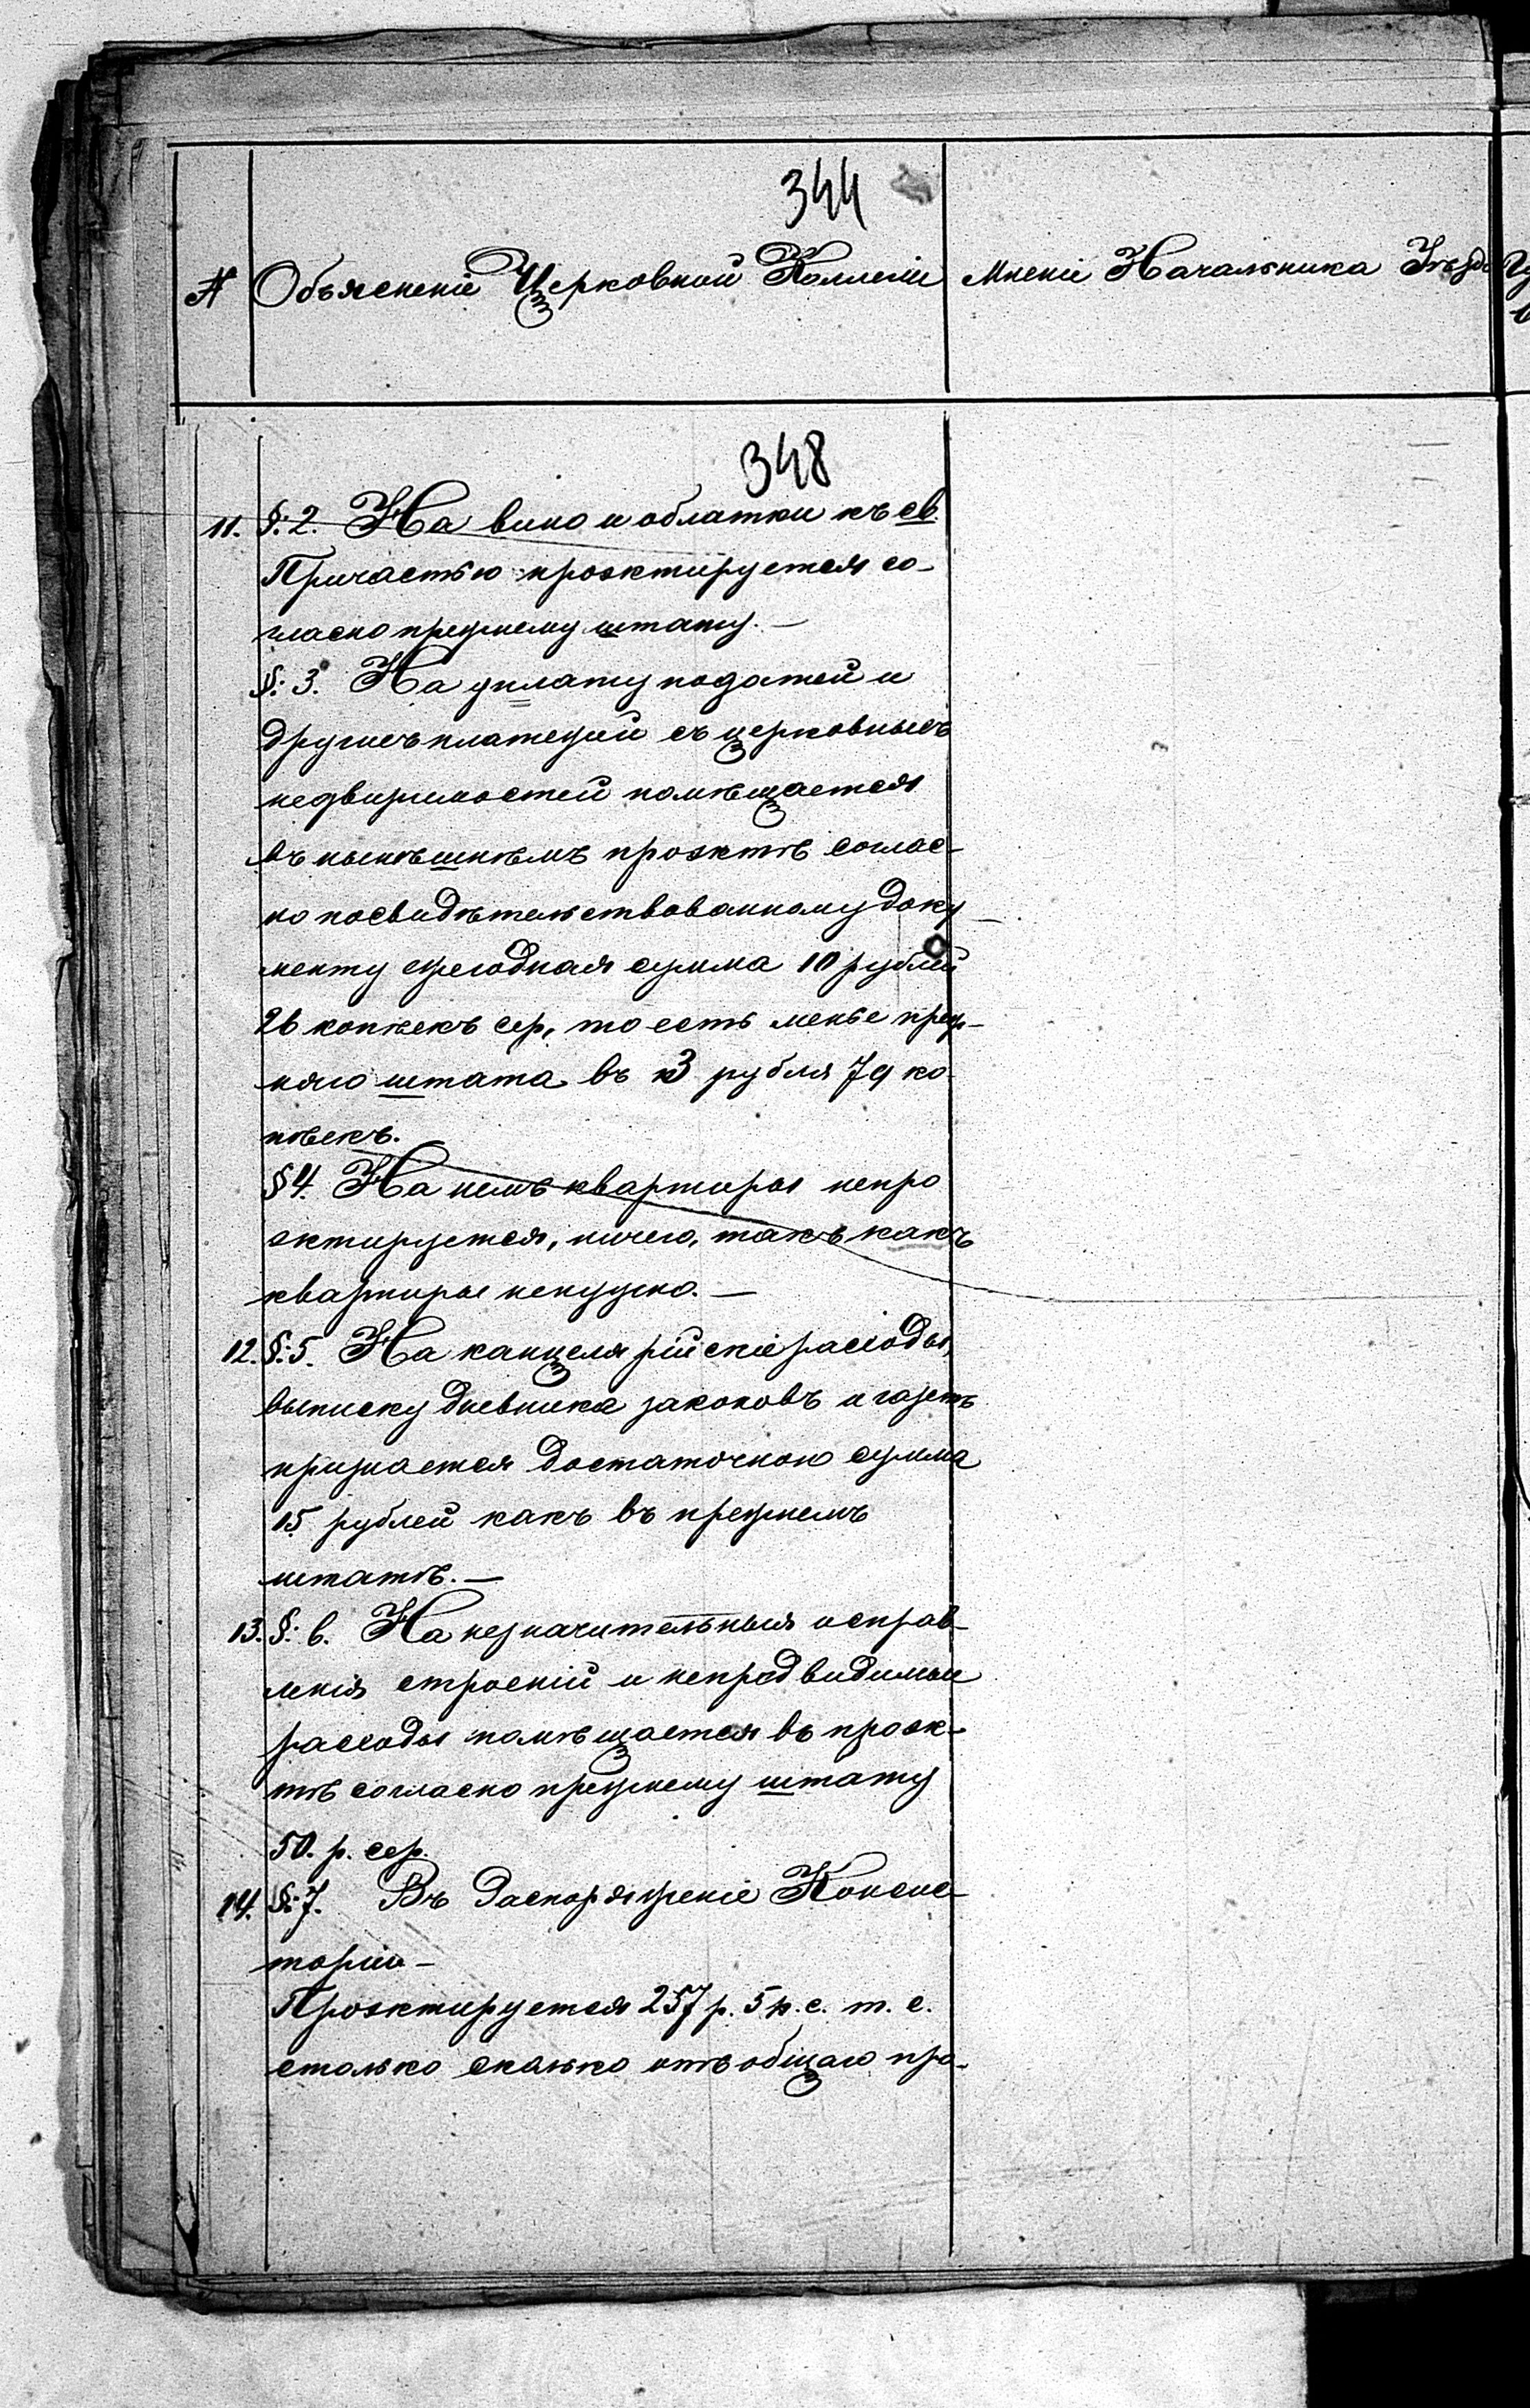 344
№ Объясненіе Церковной Коллегіи Мненіе Начальника Уѣзда
348
11. §. 2. На вино и облатки къ св.
Причастью проэктируется со-
гласно прежнему штату. —
§. 3. На уплату податей и
другихъ платежей съ церковныхъ
недвижимостей помѣщается
въ нынѣшнѣмъ проэктѣ соглас-
но посвидѣтельствованному доку-
менту ежегодная сумма 10 рублей
26 копѣекъ сер, то есть менѣе преж-
няго штата въ 3 рубля 79 ко-
пѣекъ.
§ 4. На немъ квартиры непро
эктируется, ничего, такъ какъ
квартиры ненужно. —
12. §. 5. На канцелярійскіе расходы,
выписку дневника законовъ и газетъ
признается достаточною сумма
15 рублей какъ въ прежнемъ
штатѣ. —
13. §. 6. На незначительныя исправ-
ленія строеній и непредвидимые
расходы помѣщается въ проэк-
тѣ согласно прежнему штату
50. р. сер.
14. §. 7. Въ распоряженіе Консис-
торіи —
Проэктируется 257 р. 5 к. с. т. е.
столько сколько отъ общаго про-